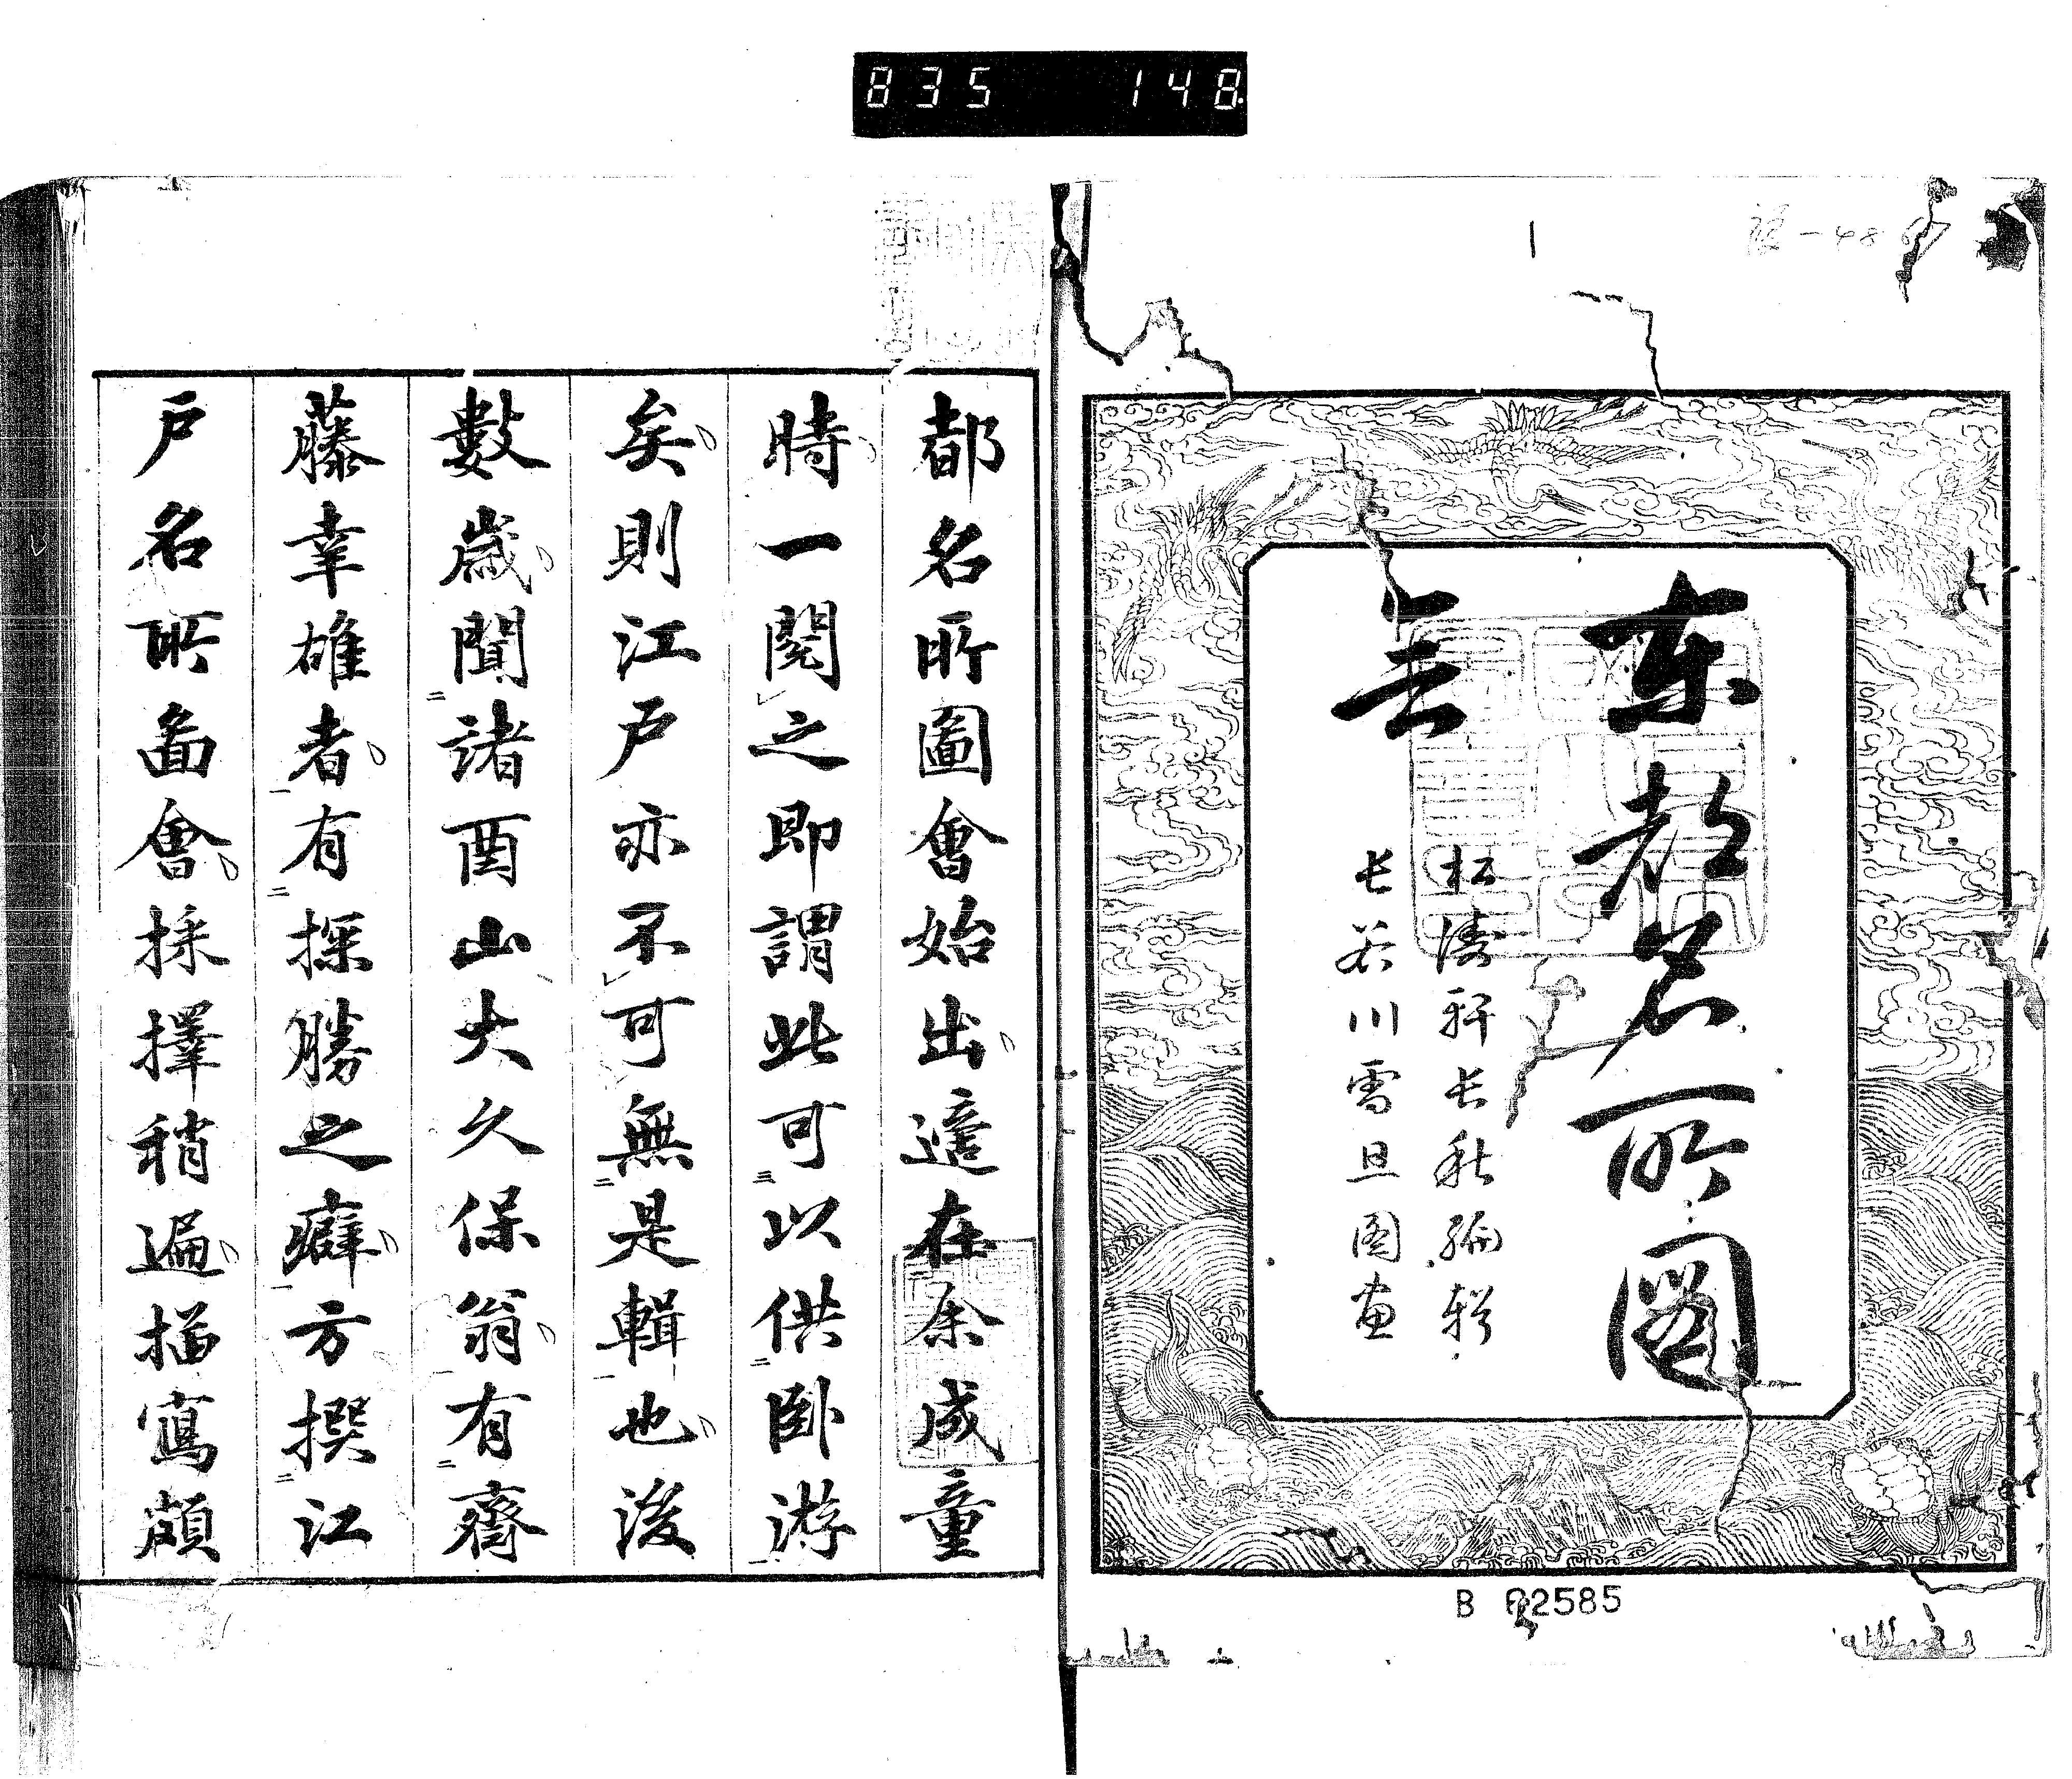 835 148
東都名所圖
會
松濤軒長秋編輯
長谷川雪旦图画
B 02585
都名所圖會始出適在余成童
時一閲之即謂此可以供卧游
矣則江戸亦不可無是輯也後
數歳聞諸酉山大久保翁有齋
藤幸雄者有探勝之癖方撰江
戸名所啚會採擇稍遍描寫頗